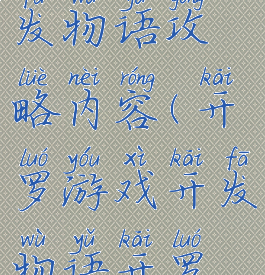 fā wù yǔ gōng
发物语攻
lüè nèi róng kāi
略内容(开
luó yóu xì kāi fā
罗游戏开发
wù yǔ kāi luó
物语开罗